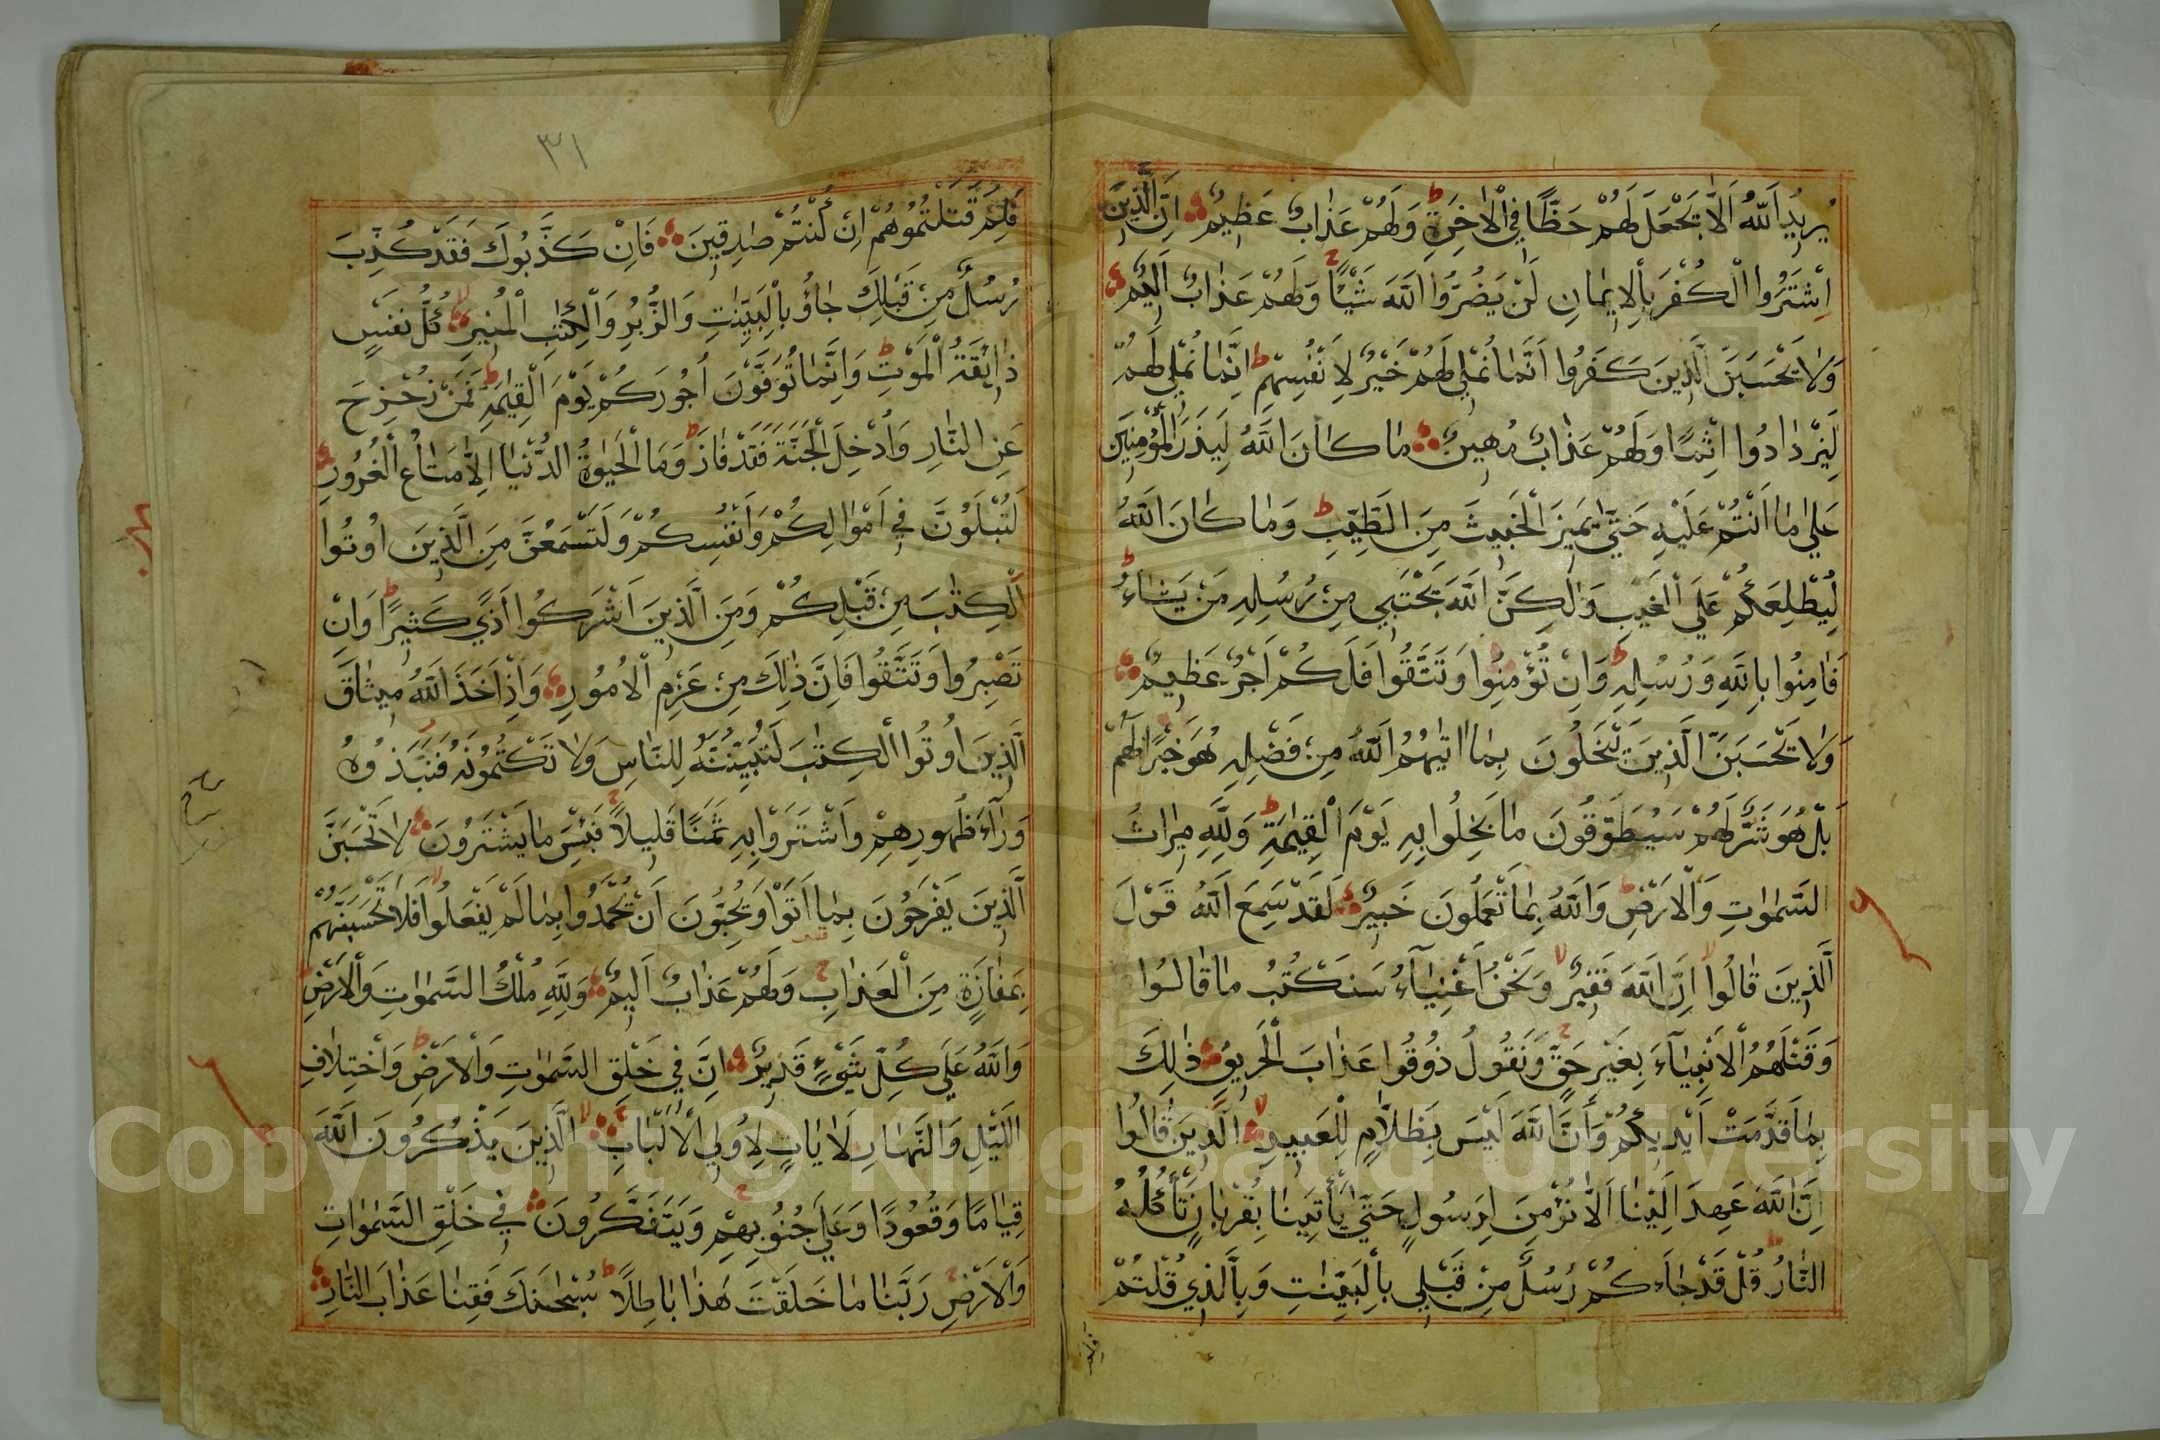 يُرِيدُ اللّٰهُ اَلَّا يَجْعَلَ لَهُمْ حَظًّا فِي الْاٰخِرَةِ ط وَلَهُمْ عَذَابٌ عَظِيمٌ اِنَّ الَّذِينَ
اشْتَرَوُا الْكُفْرَ بِالْاِيمَانِ لَنْ يَضُرُّوا اللّٰهَ شَيْئًا ج وَلَهُمْ عَذَابٌ اَلِيمٌ
وَلَا تَحْسَبَنَّ الَّذِينَ كَفَرُوا اَنَّمَا نُمْلِي لَهُمْ خَيْرٌ لِاَنْفُسِهِمْ ط اِنَّمَا نُمْلِي لَهُمْ
لِيَزْدَادُوا اِثْمًا وَلَهُمْ عَذَابٌ مُهِينٌ مَا كَانَ اللّٰهُ لِيَذَرَ الْمُؤْمِنِينَ
عَلَى مَا اَنْتُمْ عَلَيْهِ حَتَّى يَمِيزَ الْخَبِيثَ مِنَ الطَّيِّبِ ط وَمَا كَانَ اللّٰهُ
لِيُطْلِعَكُمْ عَلَى الْغَيْبِ وَلٰكِنَّ اللّٰهَ يَجْتَبِي مِنْ رُسُلِهِ مَنْ يَشَاءُ ط
فَاٰمِنُوا بِاللّٰهِ وَرُسُلِهِ ط وَاِنْ تُؤْمِنُوا وَتَتَّقُوا فَلَكُمْ اَجْرٌ عَظِيمٌ
وَلَا تَحْسَبَنَّ الَّذِينَ يَبْخَلُونَ بِمَا اٰتٰيهُمُ اللّٰهُ مِنْ فَضْلِهِ هُوَ خَيْرًا لَهُمْ
بَلْ هُوَ شَرٌّ لَهُمْ سَيُطَوَّقُونَ مَا بَخِلُوا بِهِ يَوْمَ الْقِيٰمَةِ ط وَلِلّٰهِ مِيرَاثُ
السَّمٰوَاتِ وَالْاَرْضِ ط وَاللّٰهُ بِمَا تَعْمَلُونَ خَبِيرٌ لَقَدْ سَمِعَ اللّٰهُ قَوْلَ
الَّذِينَ قَالُوا لا اِنَّ اللّٰهَ فَقِيرٌ لا وَنَحْنُ اَغْنِيَاءُ سَنَكْتُبُ مَا قَالُوا
وَقَتْلَهُمُ الْاَنْبِيَاءَ بِغَيْرِ حَقٍّ ج وَنَقُولُ ذُوقُوا عَذَابَ الْحَرِيقِ ذٰلِكَ
بِمَا قَدَّمَتْ اَيْدِيكُمْ وَاَنَّ اللّٰهَ لَيْسَ بِظَلَّامٍ لِلْعَبِيدِ لا الَّذِينَ قَالُوا
اِنَّ اللّٰهَ عَهِدَ اِلَيْنَا اَلَّا نُؤْمِنَ لِرَسُولٍ حَتَّى يَأْتِيَنَا بِقُرْبَانٍ تَأْكُلُهُ
النَّارُ ط قُلْ قَدْ جَاءَكُمْ رُسُلٌ مِنْ قَبْلِي بِالْبَيِّنَاتِ وَبِالَّذِي قُلْتُمْ
فلم
٣١
فَلِمَ قَتَلْتُمُوهُمْ اِنْ كُنْتُمْ صَادِقِينَ فَاِنْ كَذَّبُوكَ فَقَدْ كُذِّبَ
رُسُلٌ مِنْ قَبْلِكَ جَاؤُ بِالْبَيِّنٰتِ وَالزُّبُرِ وَالْكِتٰبِ الْمُنِيرِ كُلُّ نَفْسٍ
ذَائِقَةُ الْمَوْتِ ط وَاِنَّمَا تُوَفَّوْنَ اُجُورَكُمْ يَوْمَ الْقِيٰمَةِ ط فَمَنْ زُحْزِحَ
عَنِ النَّارِ وَاُدْخِلَ الْجَنَّةَ فَقَدْ فَازَ ط وَمَا الْحَيٰوةُ الدُّنْيَا اِلَّا مَتَاعُ الْغُرُورِ
لَتُبْلَوُنَّ فِي اَمْوَالِكُمْ وَاَنْفُسِكُمْ وَلَتَسْمَعُنَّ مِنَ الَّذِينَ اُوتُوا
الْكِتٰبَ مِنْ قَبْلِكُمْ وَمِنَ الَّذِينَ اَشْرَكُوا اَذًى كَثِيرًا ط وَاِنْ
تَصْبِرُوا وَتَتَّقُوا فَاِنَّ ذٰلِكَ مِنْ عَزْمِ الْاُمُورِ وَاِذْ اَخَذَ اللّٰهُ مِيثَاقَ
الَّذِينَ اُوتُوا الْكِتٰبَ لَتُبَيِّنُنَّهُ لِلنَّاسِ وَلَا تَكْتُمُونَهُ فَنَبَذُوهُ
وَرَاءَ ظُهُورِهِمْ وَاشْتَرَوْا بِهِ ثَمَنًا قَلِيلًا ج فَبِئْسَ مَا يَشْتَرُونَ لَا تَحْسَبَنَّ
الَّذِينَ يَفْرَحُونَ بِمَا اَتَوْا وَيُحِبُّونَ اَنْ يُحْمَدُوا بِمَا لَمْ يَفْعَلُوا لا فَلَا تَحْسَبَنَّهُمْ
بِمَفَازَةٍ مِنَ الْعَذَابِ ج وَلَهُمْ عَذَابٌ اَلِيمٌ وَلِلّٰهِ مُلْكُ السَّمٰوَاتِ وَالْاَرْضِ
وَاللّٰهُ عَلَى كُلِّ شَيْءٍ قَدِيرٌ اِنَّ فِي خَلْقِ السَّمٰوَاتِ وَالْاَرْضِ ط وَاخْتِلَافِ
اللَّيْلِ وَالنَّهَارِ لَاٰيَاتٍ لِاُولِي الْاَلْبَابِ لا الَّذِينَ يَذْكُرُونَ اللّٰهَ
قِيَامًا وَقُعُودًا وَعَلَى جُنُوبِهِمْ ج وَيَتَفَكَّرُونَ فِي خَلْقِ السَّمٰوَاتِ
وَالْاَرْضِ ج رَبَّنَا مَا خَلَقْتَ هٰذَا بَاطِلًا ط سُبْحَانَكَ فَقِنَا عَذَابَ النَّارِ
Copyright © King Saud University